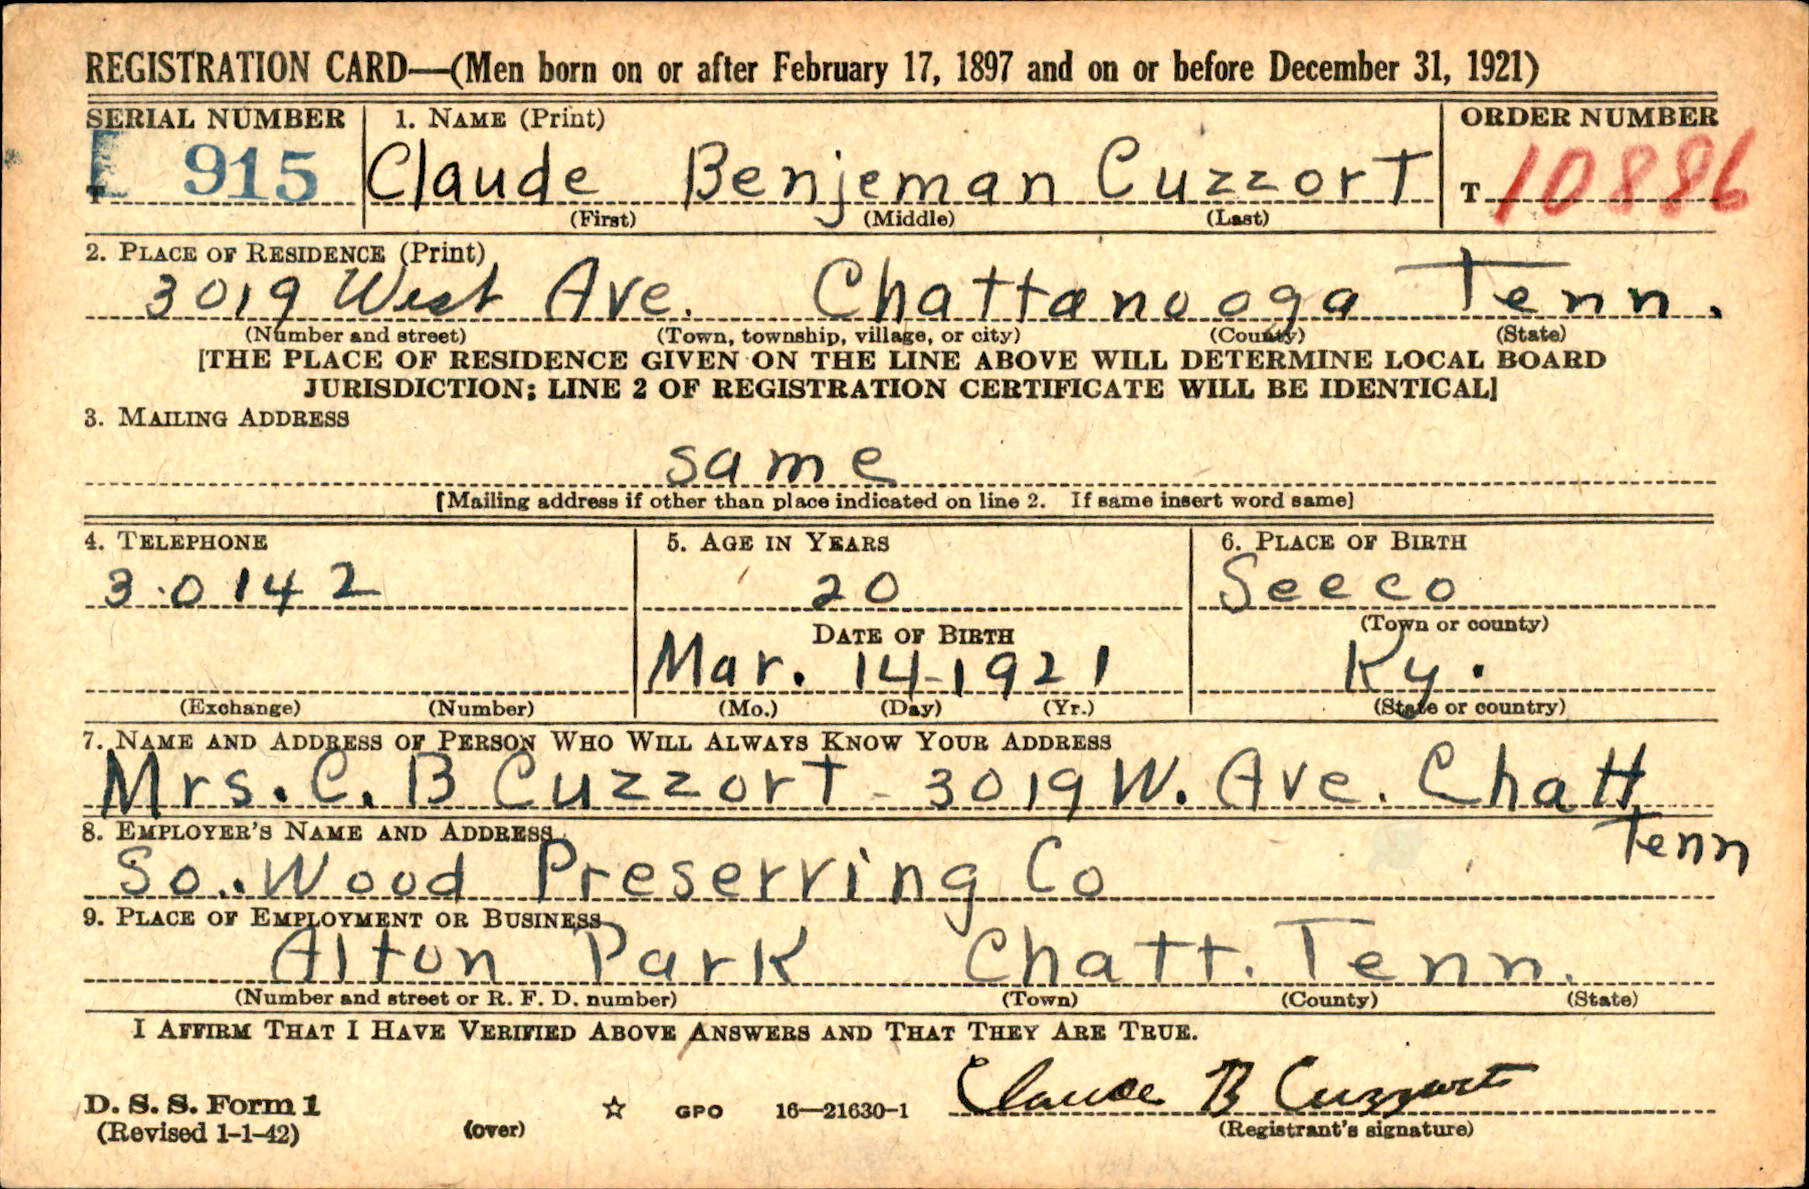 REGISTRATION CARD—(Men born on or after February 17, 1897 and on or before December 31, 1921)
SERIAL NUMBER 1. NAME (Print) ORDER NUMBER
T 915 Claude Benjeman Cuzzort T 10886
(First) (Middle) (Last)
2. PLACE OF RESIDENCE (Print)
3019 West Ave. Chattanooga Tenn.
(Number and street) (Town, township, village, or city) (County) (State)
[THE PLACE OF RESIDENCE GIVEN ON THE LINE ABOVE WILL DETERMINE LOCAL BOARD
JURISDICTION; LINE 2 OF REGISTRATION CERTIFICATE WILL BE IDENTICAL]
3. MAILING ADDRESS
same
[Mailing address if other than place indicated on line 2. If same insert word same]
4. TELEPHONE 5. AGE IN YEARS 6. PLACE OF BIRTH
3.0142 20 Seeco
DATE OF BIRTH (Town or county)
Mar. 14-1921 Ky.
(Exchange) (Number) (Mo.) (Day) (Yr.) (State or country)
7. NAME AND ADDRESS OF PERSON WHO WILL ALWAYS KNOW YOUR ADDRESS
Mrs. C. B Cuzzort - 3019 W. Ave. Chatt
Tenn
8. EMPLOYER'S NAME AND ADDRESS
So. Wood Preserving Co
9. PLACE OF EMPLOYMENT OR BUSINESS
Alton Park Chatt. Tenn.
(Number and street or R. F. D. number) (Town) (County) (State)
I AFFIRM THAT I HAVE VERIFIED ABOVE ANSWERS AND THAT THEY ARE TRUE.
Claude B Cuzzort
D. S. S. Form 1 ☆ GPO 16—21630-1
(Revised 1-1-42) (over) (Registrant's signature)